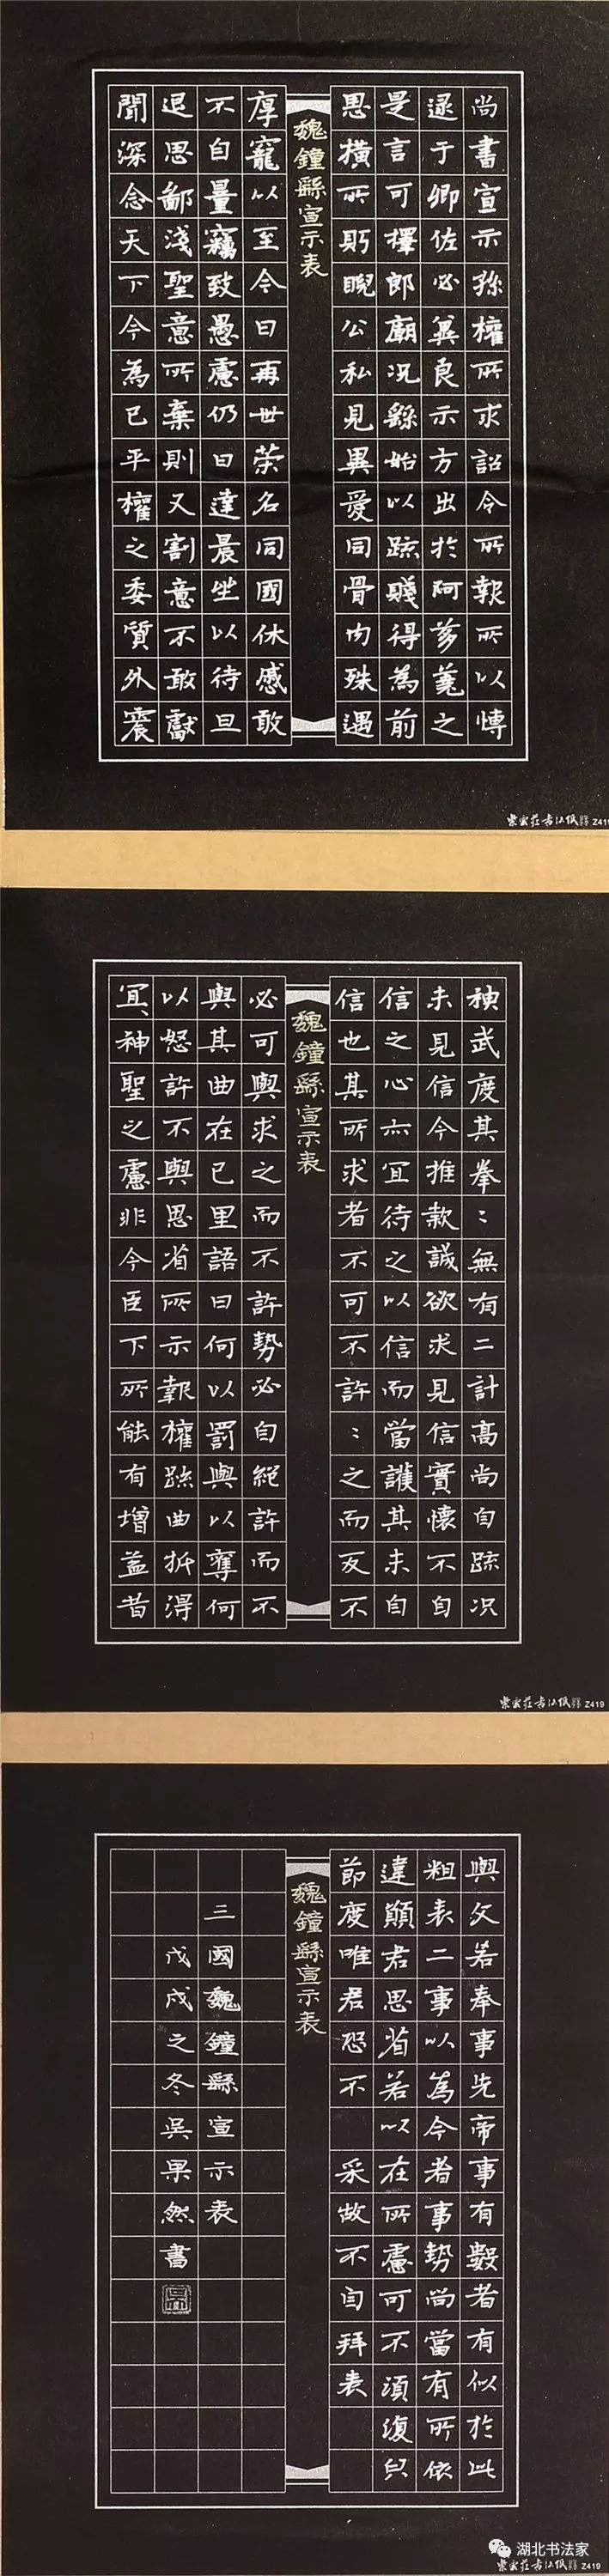 尚書宣示孫權所求詔令所報所以博
逮于卿佐必冀良示方出於阿芻蕘之
是言可擇郎廟況繇始以疏賤得為前
恩橫所眄睨公私見異愛同骨肉殊遇
魏鐘繇宣示表
厚寵以至今日再世荣名同國休慼敢
不自量竊致愚慮仍日達晨坐以待旦
退思鄙淺聖意所棄則又割意不敢獻
聞深念天下今為已平權之委質外震
紫雲莊书法纸 Z419
神武度其拳〻無有二計高尚自疏况
未見信今推款誠欲求見信實懷不自
信之心亦冝待之以信而當護其未自
信也其所求者不可不許〻之而反不
魏鐘繇宣示表
必可與求之而不許勢必自絕許而不
與其曲在已里語曰何以罰與以奪何
以怒許不與思省所示報權疏曲折得
冝神聖之慮非今臣下所能有增益昔
紫雲莊书法纸 Z419
與文若奉事先帝事有數者有似於此
粗表二事以為今者事勢尚當有所依
違顚君思省若以在所慮可不須復皃
節度唯君恐不 采故不自拜表
魏鐘繇宣示表
三國魏鐘繇宣示表
戊戌之冬吳果然書
湖北书法家
紫雲莊书法纸 Z419